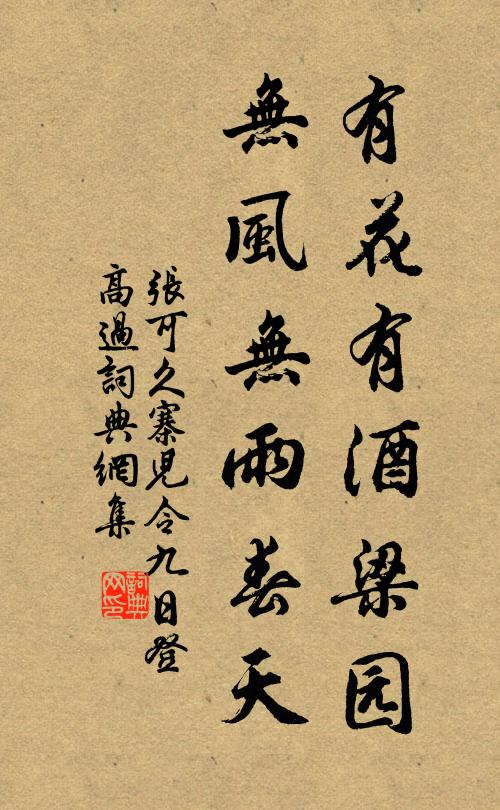 有花有酒梁园
無風無雨春天
張可久寨児令九日登
高過詞典網集
詞典
网印